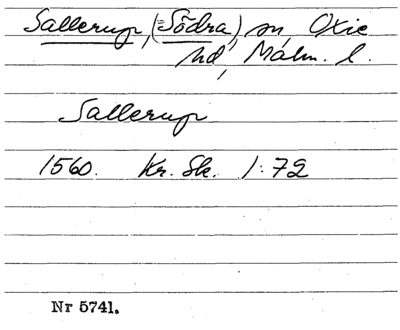 Sallerup, (Södra) sn, Oxie
hd, Malm. l.
Sallerup
1560. Kr. Sk. 1:72
Nr 5741.